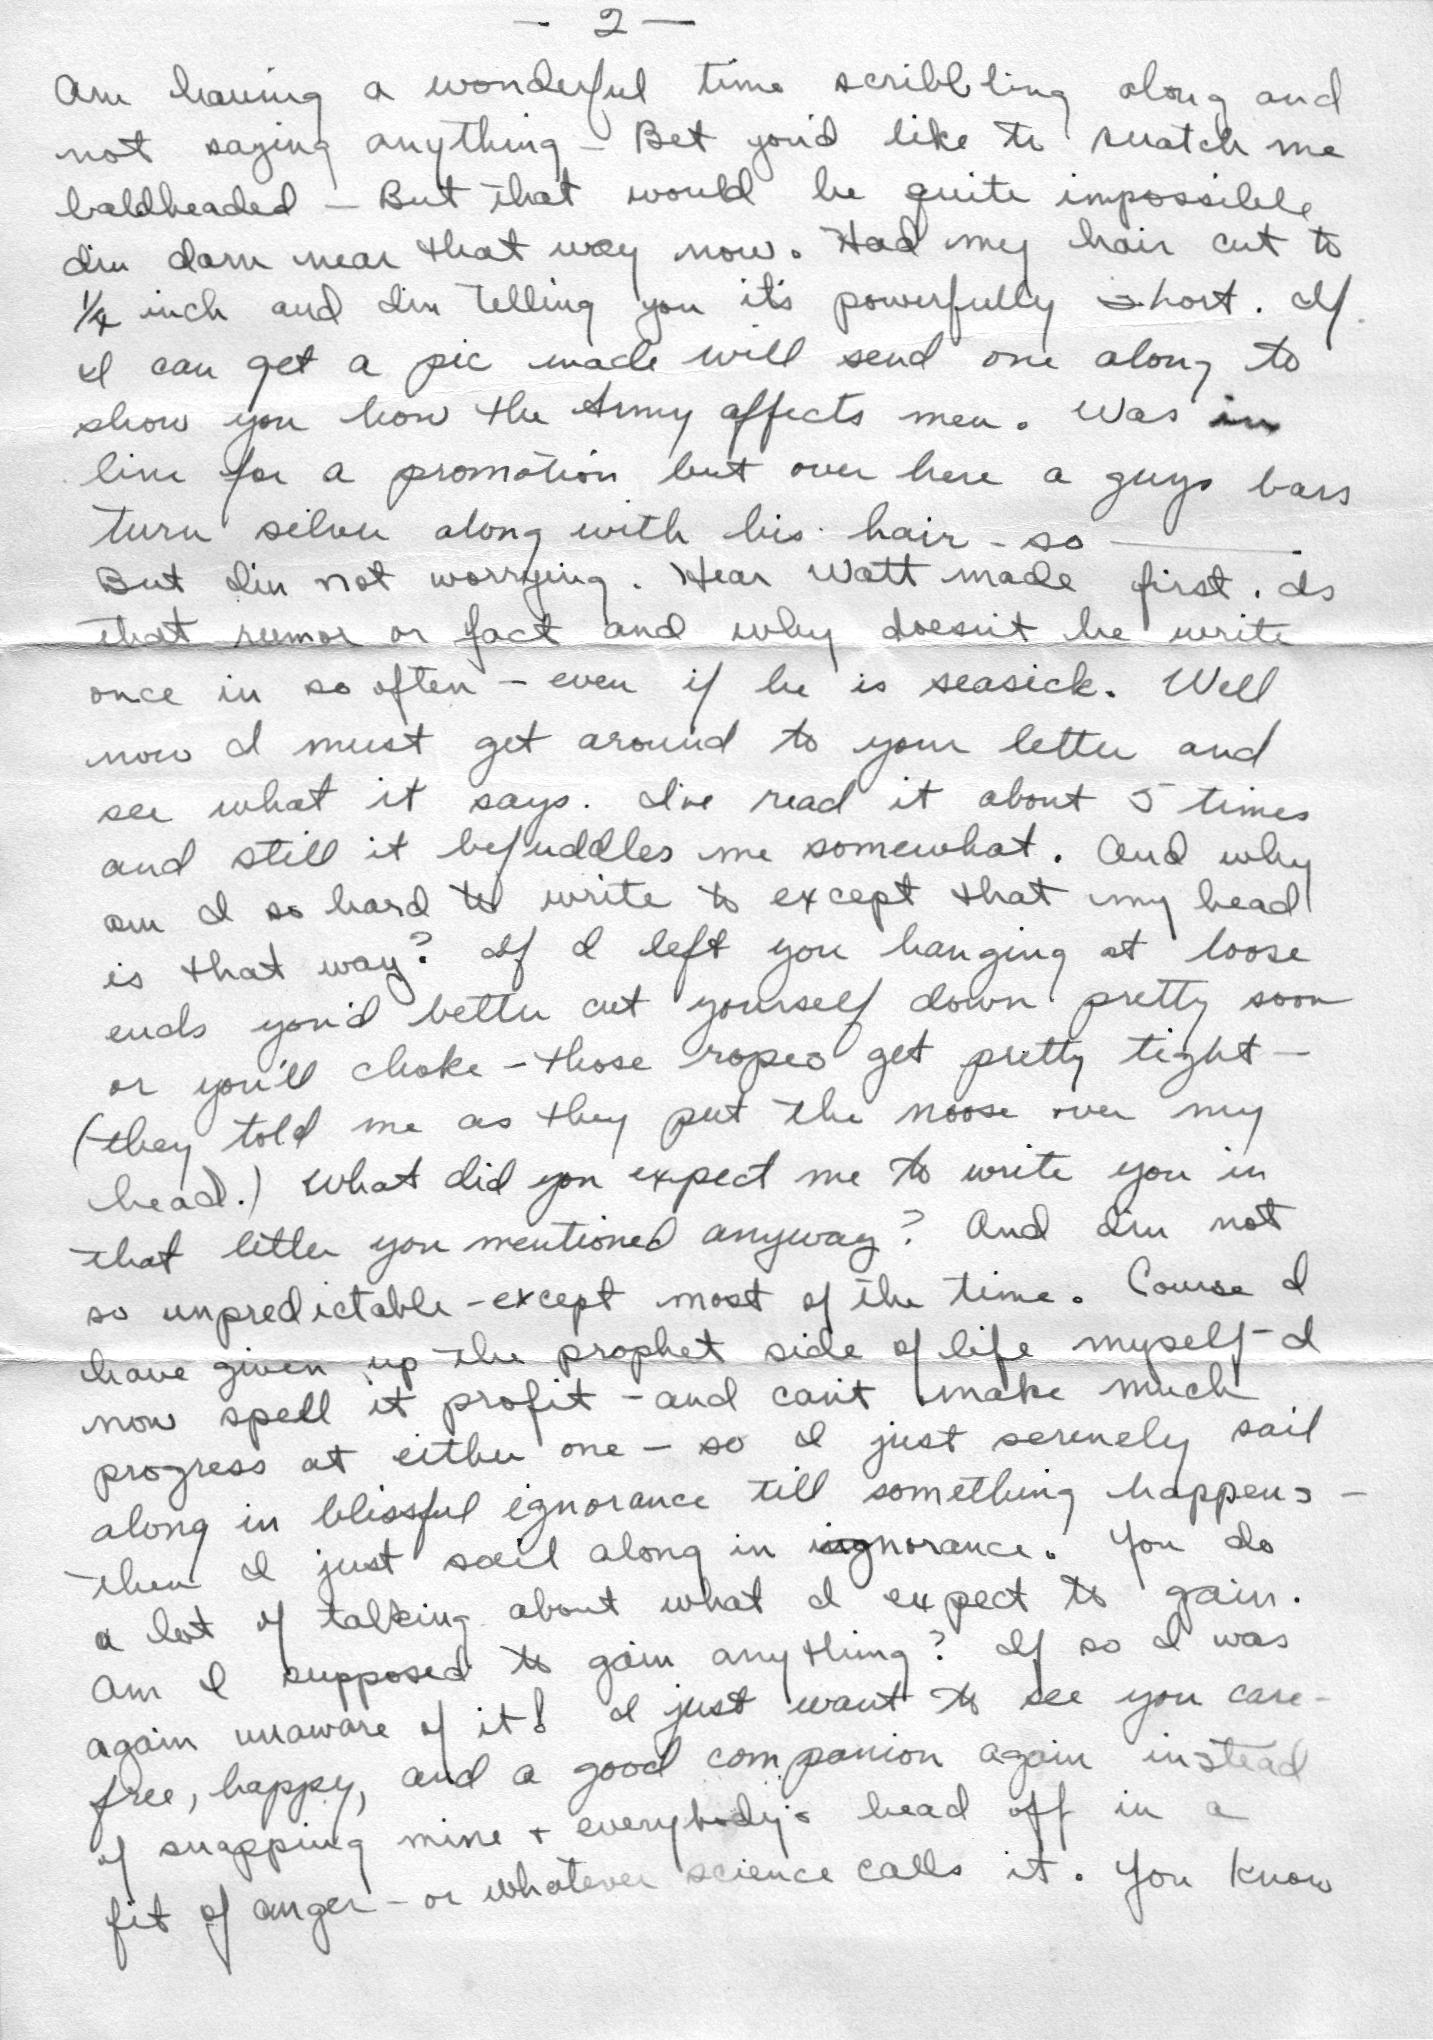 - 2 -
Am having a wonderful time scribbling along and
not saying anything - Bet you'd like to snatch me
baldheaded - But that would be quite impossible
I'm darn near that way now. Had my hair cut to
1/4 inch and I'm telling you it's powerfully short. If
I can get a pic made will send one along to
show you how the Army affects men. Was in
line for a promotion but over here a guys bars
turn silver along with his hair - so ———.
But I'm not worrying. Hear Watt made first. Is
that rumor or fact and why doesn't he write
once in so often - even if he is seasick. Well
now I must get around to your letter and
see what it says. I've read it about 5 times
and still it befuddles me somewhat. And why
am I so hard to write to except that my head
is that way? If I left you hanging at loose
ends you'd better cut yourself down pretty soon
or you'll choke - those ropes get pretty tight -
(they told me as they put the noose over my
head.) What did you expect me to write you in
that letter you mentioned anyway? And I'm not
so unpredictable - except most of the time. Course I
have given up the prophet side of life myself - I
now spell it profit - and can't make much
progress at either one - so I just serenely sail
along in blissful ignorance till something happens -
then I just sail along in ignorance. You do
a lot of talking about what I expect to gain.
Am I supposed to gain anything? If so I was
again unaware of it! I just want to see you care-
free, happy, and a good companion again instead
of snapping mine + everybody's head off in a
fit of anger - or whatever science calls it. You know